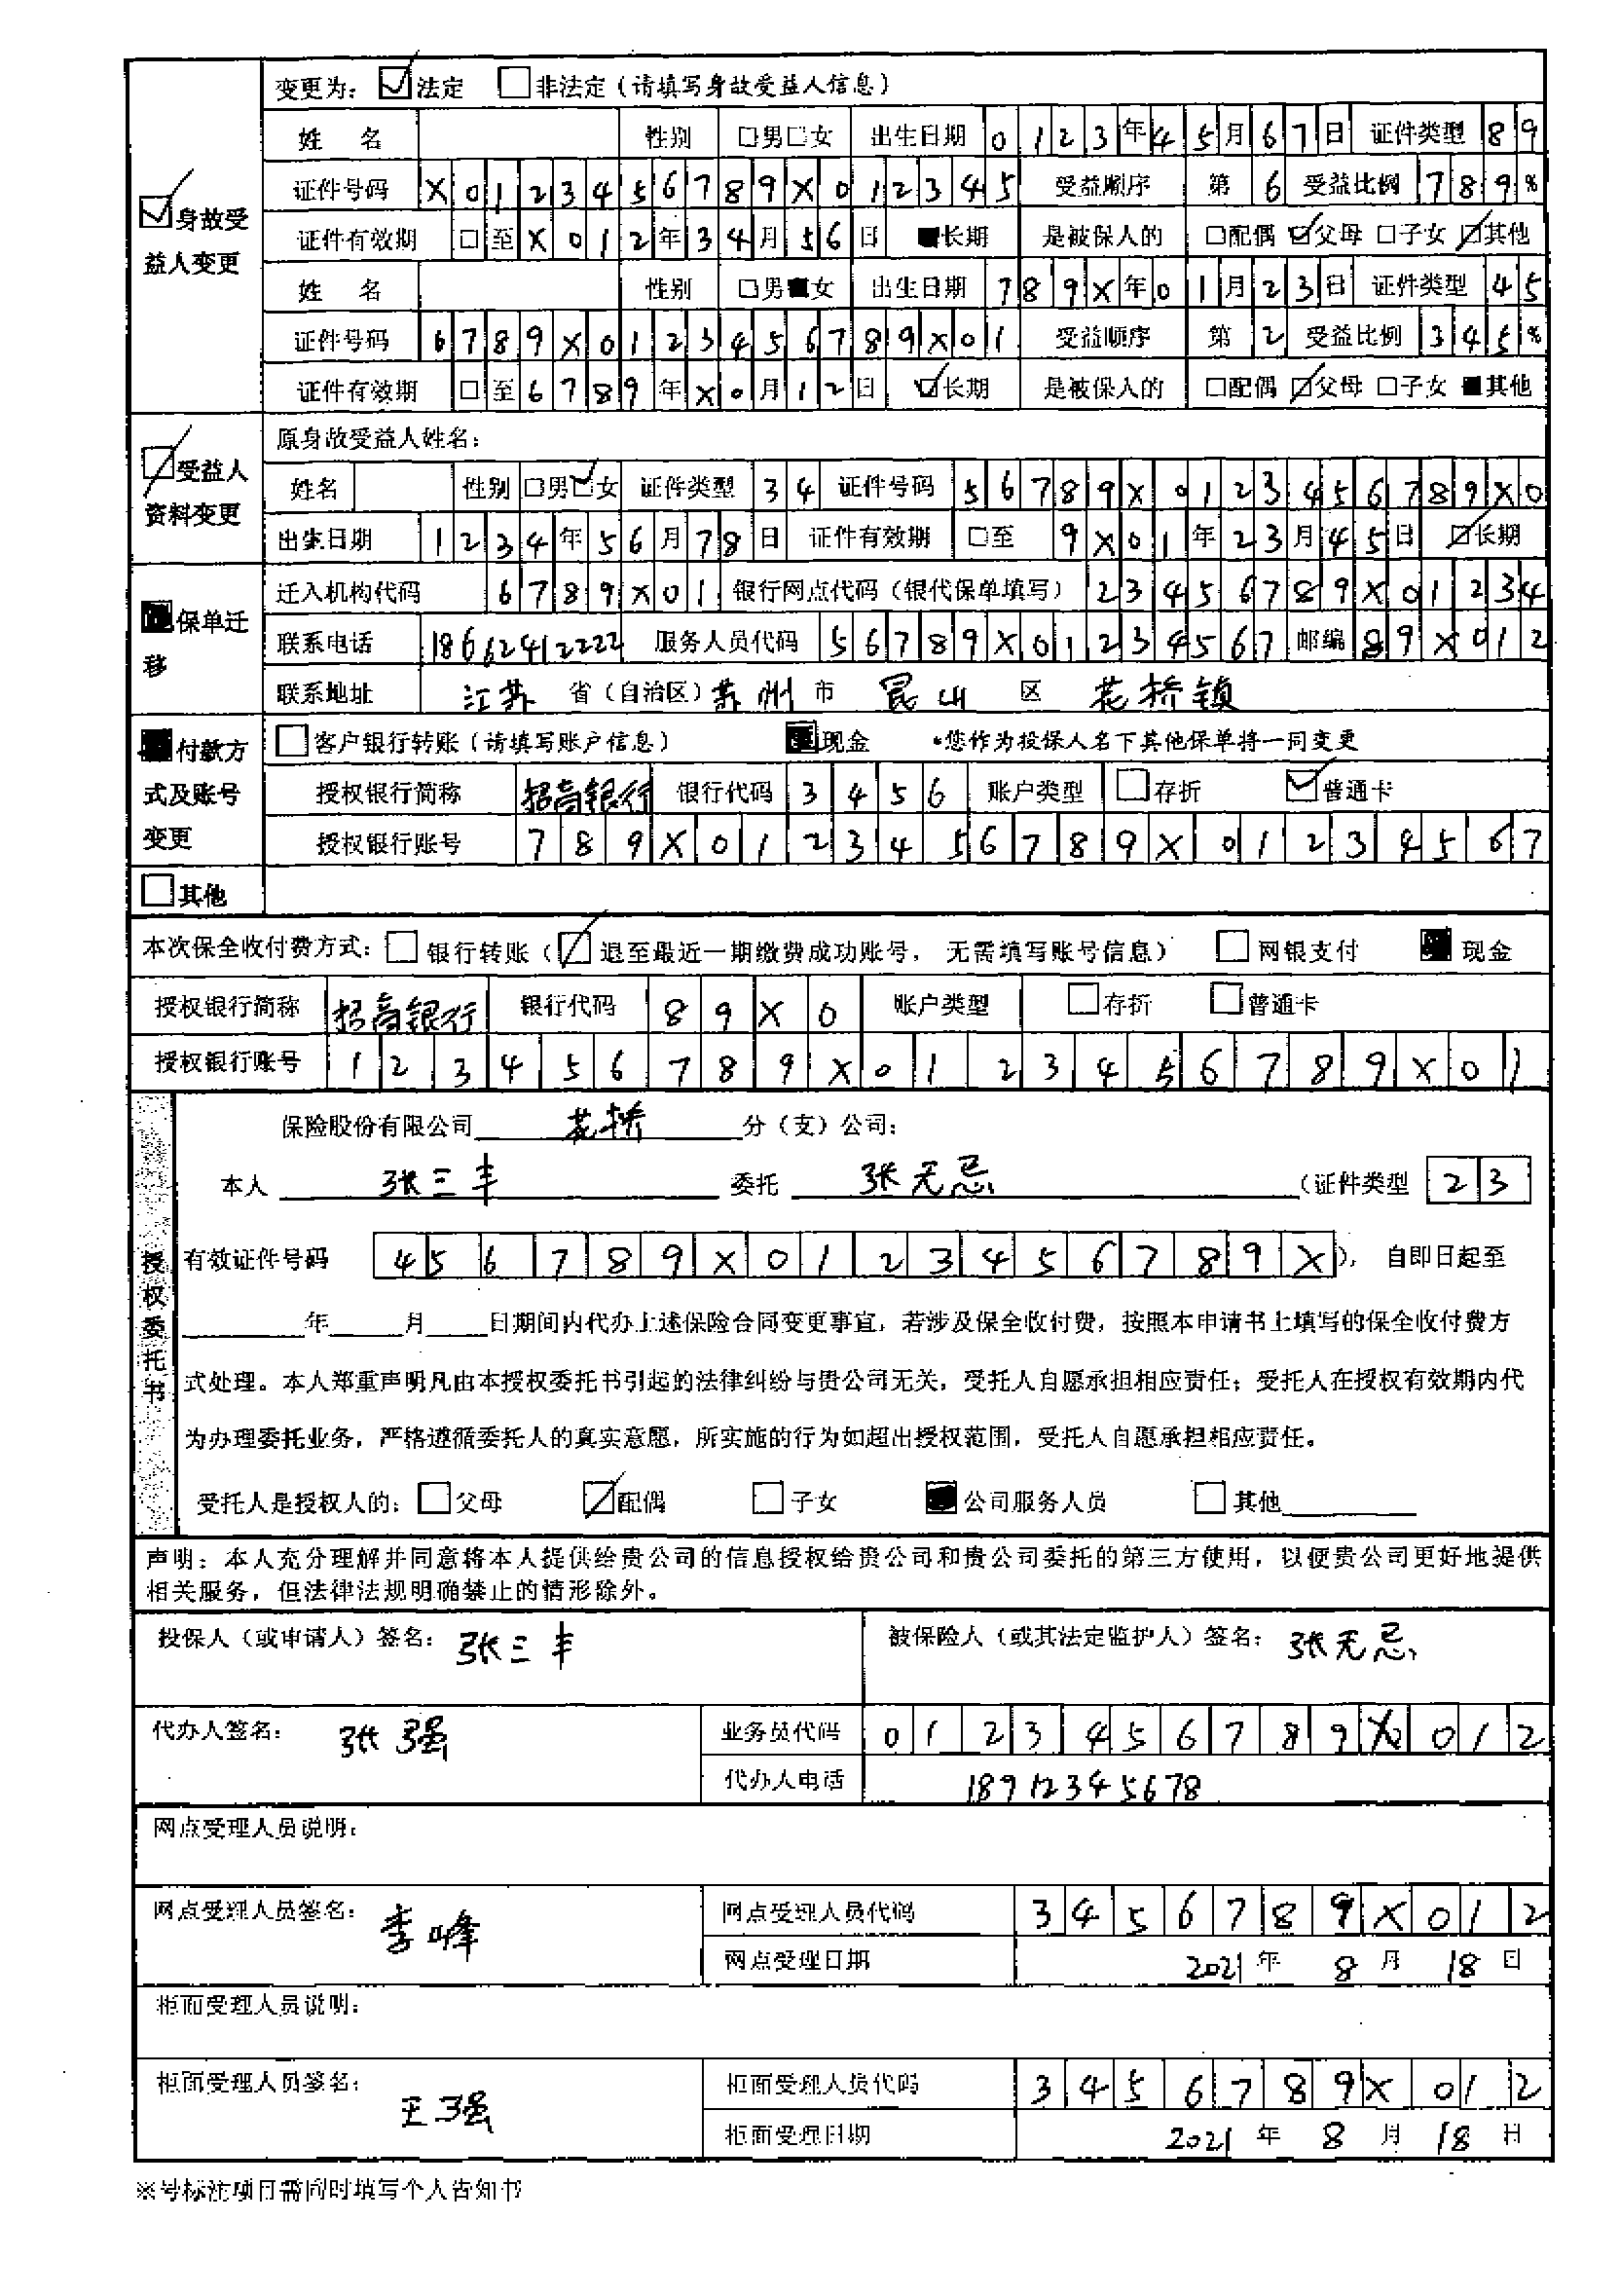 变更为: ☑法定 □非法定(请填写身故受益人信息)
姓 名 性别 □男□女 出生日期 0123年45月67日 证件类型 89
☑身故受益人变更
证件号码 X0123456789X012345 受益顺序 第6 受益比例 789%
证件有效期 □至X012年34月56日 ■长期 是被保人的 □配偶 ☑父母 □子女 ☑其他
姓 名 性别 □男■女 出生日期 789X年01月23日 证件类型 45
证件号码 6789X0123456789X01 受益顺序 第2 受益比例 345%
证件有效期 □至6789年X0月12日 ☑长期 是被保人的 □配偶 ☑父母 □子女 ■其他
☑受益人资料变更
原身故受益人姓名:
姓名 性别 □男☑女 证件类型 34 证件号码 56789X0123456789X0
出生日期 1234年56月78日 证件有效期 □至 9X01年23月45日 ☑长期
■保单迁移
迁入机构代码 6789X01 银行网点代码(银代保单填写) 23456789X01234
联系电话 18662412222 服务人员代码 56789X01234567 邮编 89X012
联系地址 江苏 省(自治区) 苏州 市 昆山 区 花桥镇
■付款方式及账号变更
□客户银行转账(请填写账户信息) ■现金 *您作为投保人名下其他保单将一同变更
授权银行简称 招商银行 银行代码 3456 账户类型 □存折 ☑普通卡
授权银行账号 789X0123456789X01234567
□其他
本次保全收付费方式: □银行转账(☑退至最近一期缴费成功账号, 无需填写账号信息) □网银支付 ■现金
授权银行简称 招商银行 银行代码 89X0 账户类型 □存折 □普通卡
授权银行账号 123456789X0123456789X01
授权委托书
保险股份有限公司 花桥 分(支)公司:
本人 张三丰 委托 张无忌 (证件类型 23
有效证件号码 456789X0123456789X), 自即日起至
____年____月____日期间内代办上述保险合同变更事宜, 若涉及保全收付费, 按照本申请书上填写的保全收付费方
式处理。本人郑重声明凡由本授权委托书引起的法律纠纷与贵公司无关, 受托人自愿承担相应责任; 受托人在授权有效期内代
为办理委托业务, 严格遵循委托人的真实意愿, 所实施的行为如超出授权范围, 受托人自愿承担相应责任。
受托人是授权人的: □父母 ☑配偶 □子女 ■公司服务人员 □其他____
声明: 本人充分理解并同意将本人提供给贵公司的信息授权给贵公司和贵公司委托的第三方使用, 以便贵公司更好地提供
相关服务, 但法律法规明确禁止的情形除外。
投保人(或申请人)签名: 张三丰 被保险人(或其法定监护人)签名: 张无忌
代办人签名: 张强 业务员代码 0123456789X012
代办人电话 18912345678
网点受理人员说明:
网点受理人员签名: 李峰 网点受理人员代码 3456789X012
网点受理日期 2021年 8月 18日
柜面受理人员说明:
柜面受理人员签名: 王强 柜面受理人员代码 3456789X012
柜面受理日期 2021年 8月 18日
※号标注项目需同时填写个人告知书